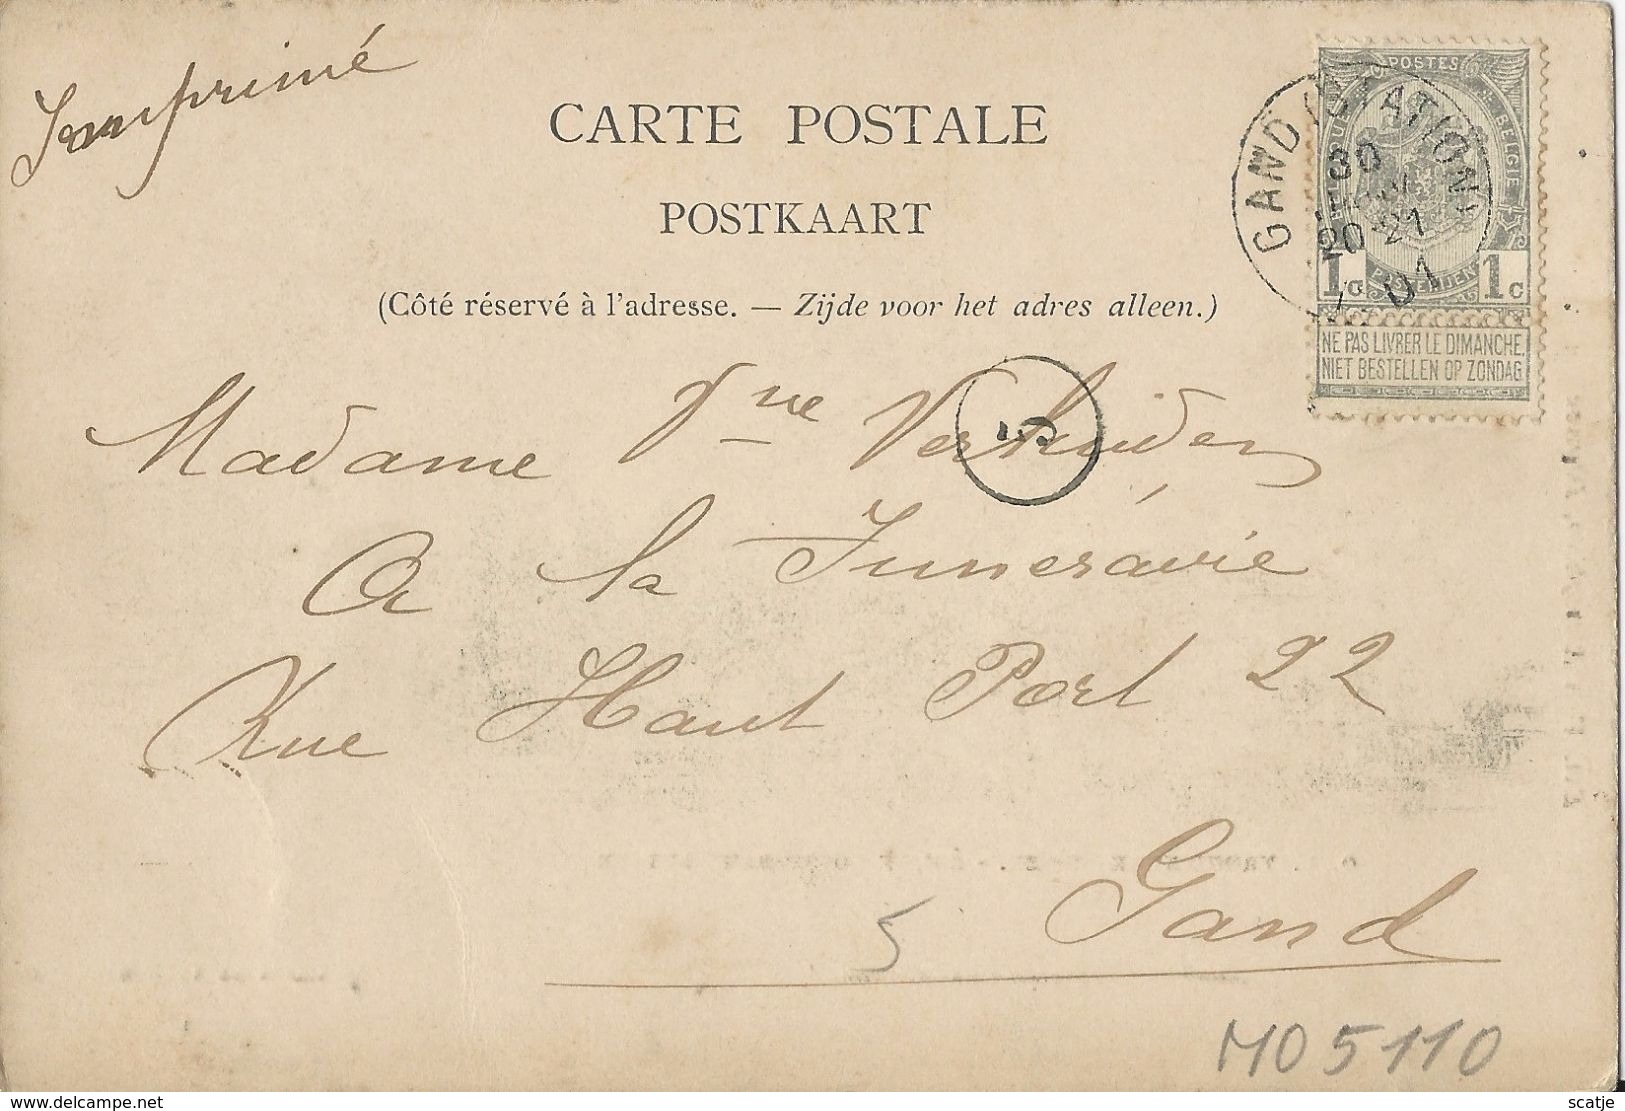 Imprimé
CARTE POSTALE
POSTKAART
(Côté réservé à l'adresse. — Zijde voor het adres alleen.)
GAND (STATION)
30
20-21
01
POSTES
BELGIQUE
BELGIE
1c 1c
NE PAS LIVRER LE DIMANCHE.
NIET BESTELLEN OP ZONDAG
Madame Vne
A la Funéraire
Rue Haut Port 22
Gand
5
MO 5110
delcampe.net
scatje